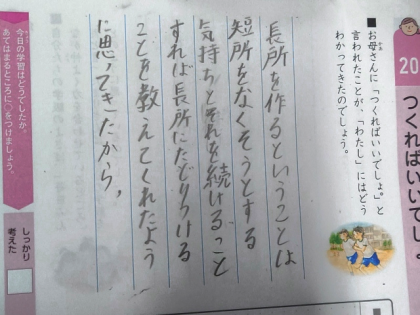 20
つくればいいでしょ
■お母さんに「つくればいいでしょ。」と
言われたことが、「わたし」にはどう
わかってきたのでしょう。
長所を作るということは
短所をなくそうとする
気持ちとそれを続けるっこと
すれば長所にたどりつける
ことを教えてくれたよう
に思ってきたから,
今日の学習はどうでしたか。
あてはまるところに○をつけましょう。
しっかり
考えた